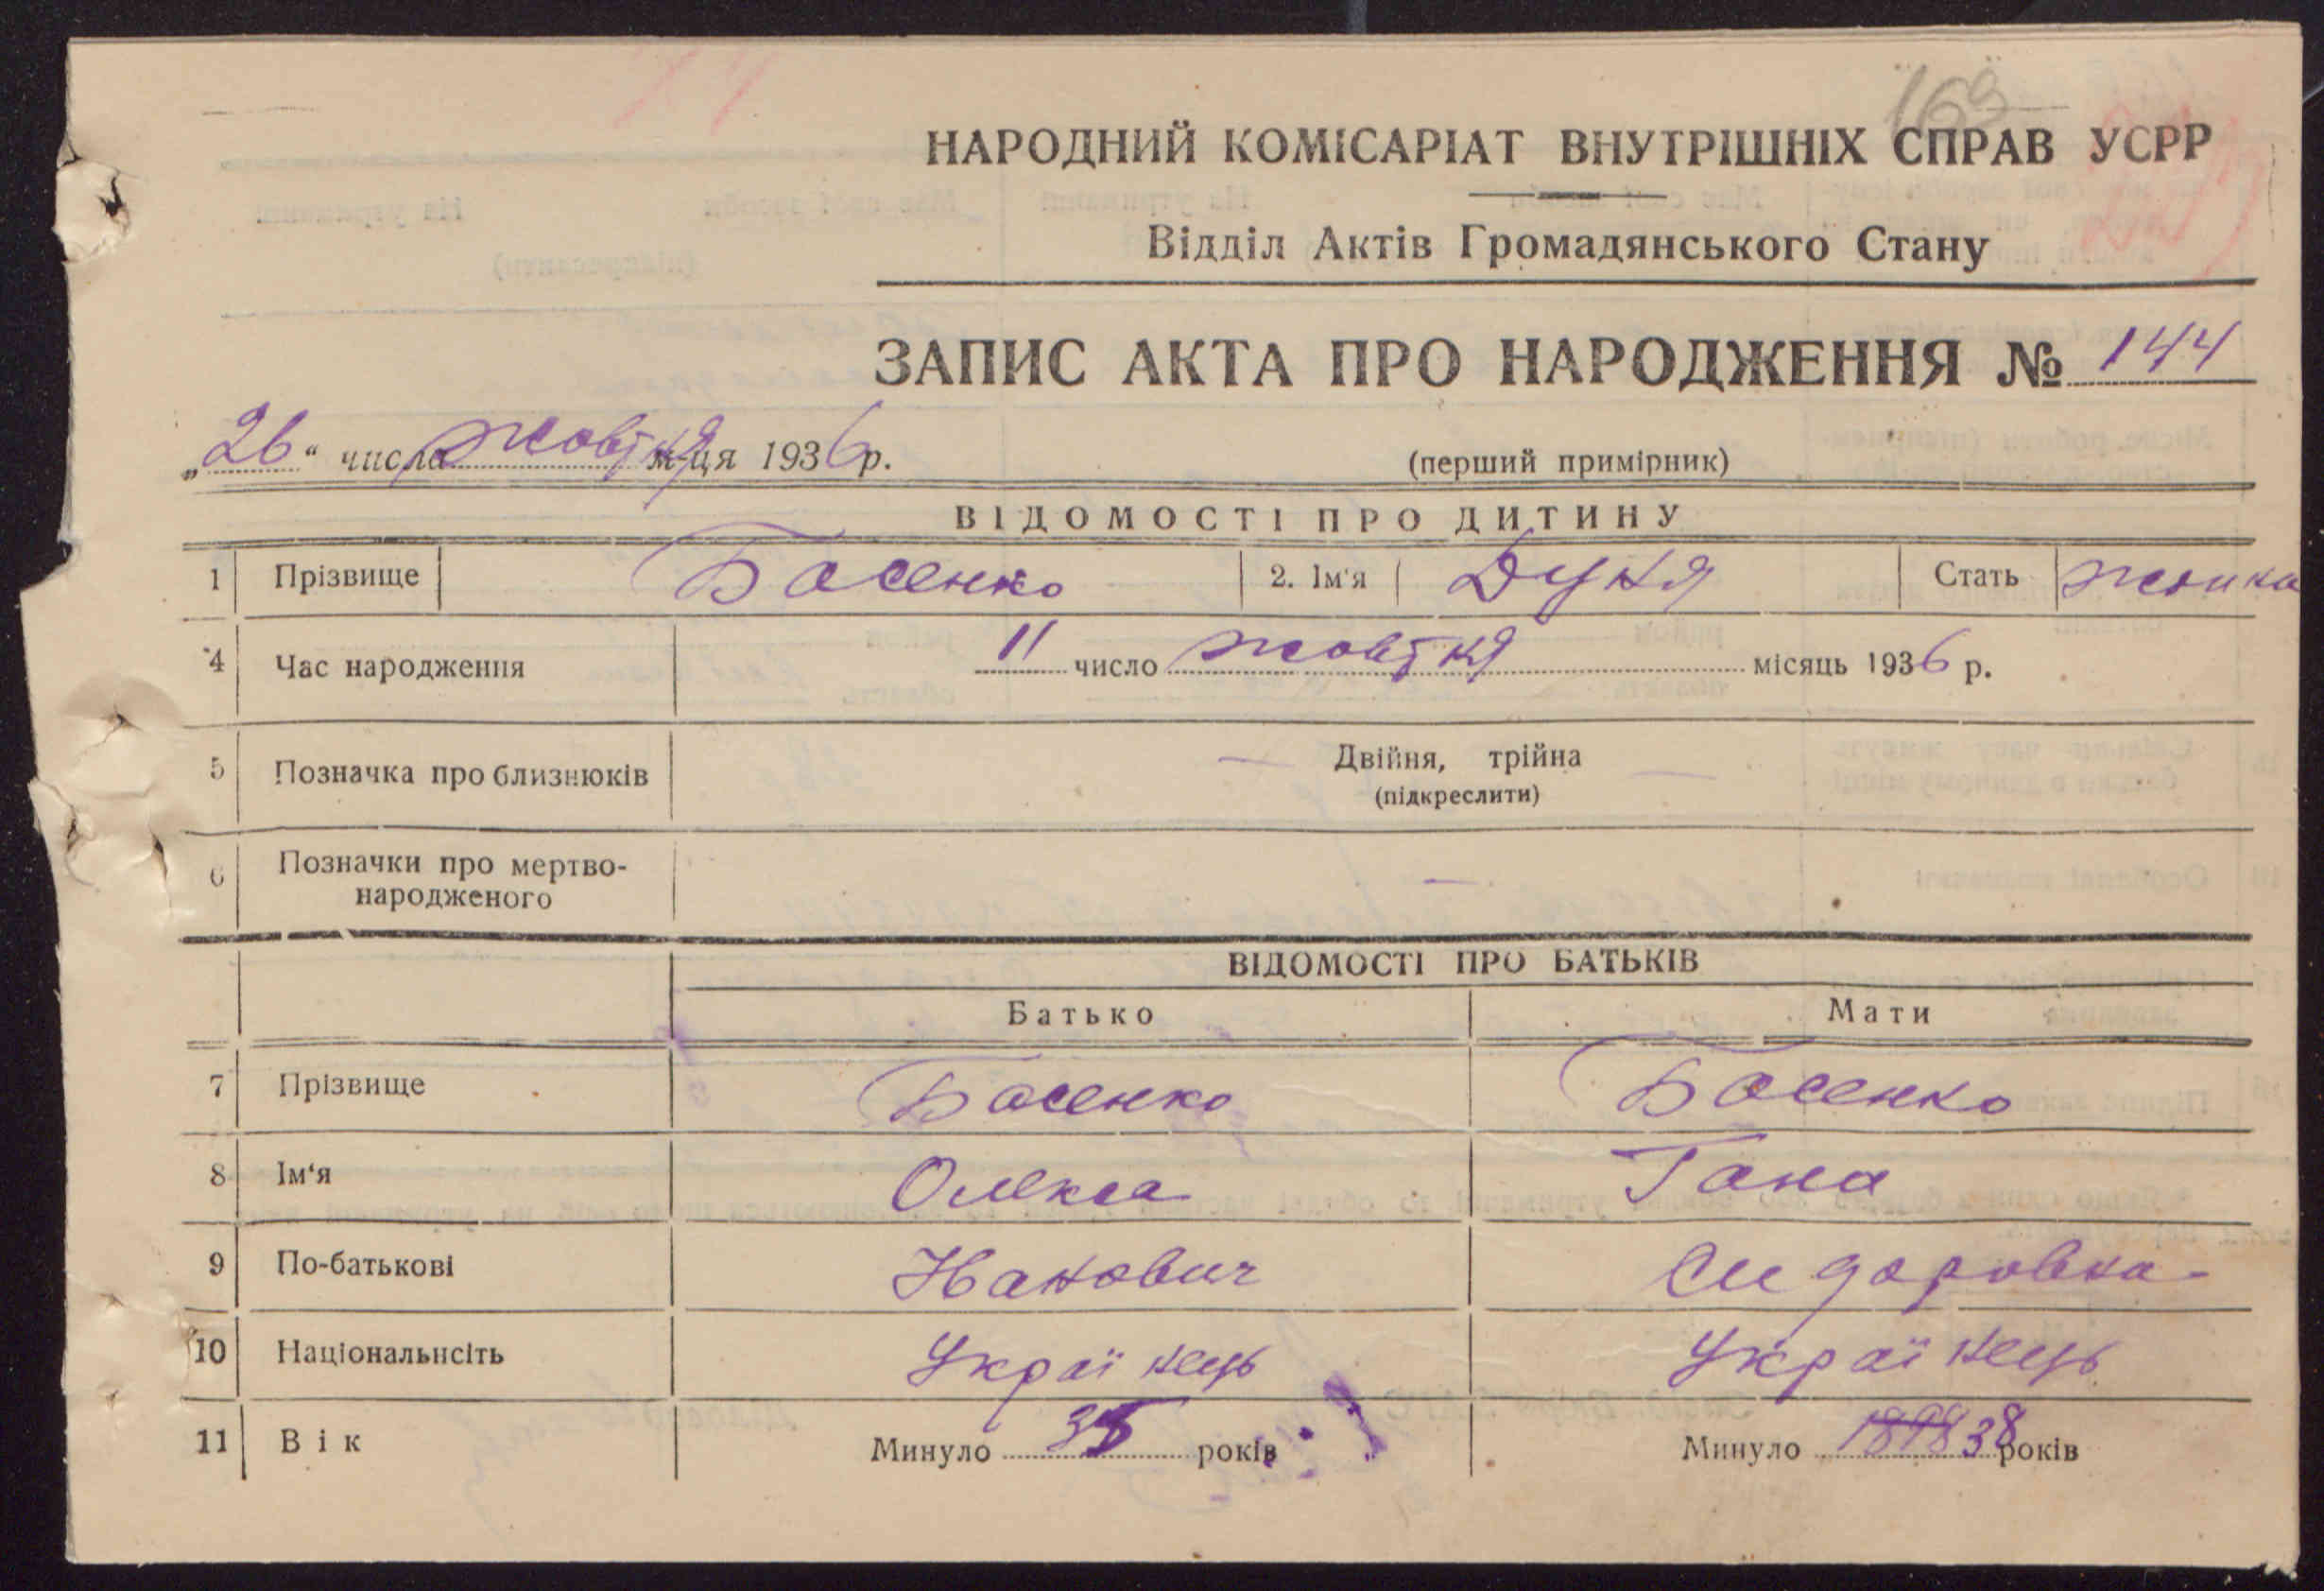 169
НАРОДНИЙ КОМІСАРІАТ ВНУТРІШНІХ СПРАВ УСРР
Відділ Актів Громадянського Стану
ЗАПИС АКТА ПРО НАРОДЖЕННЯ № 144
„26“ числа жовтня м-ця 1936 р.
(перший примірник)
ВІДОМОСТІ ПРО ДИТИНУ
1 Прізвище Басенко 2. Ім'я Дуня Стать жінка
4 Час народження 11 число жовтня місяць 1936 р.
5 Позначка про близнюків — Двійня, трійна —
(підкреслити)
6 Позначки про мертво-
народженого —
ВІДОМОСТІ ПРО БАТЬКІВ
Батько Мати
7 Прізвище Басенко Басенко
8 Ім‘я Олекса Гана
9 По-батькові Іванович Сидоровна
10 Національнсіть Українець Українець
11 Вік Минуло 35 років Минуло 1898 38 років